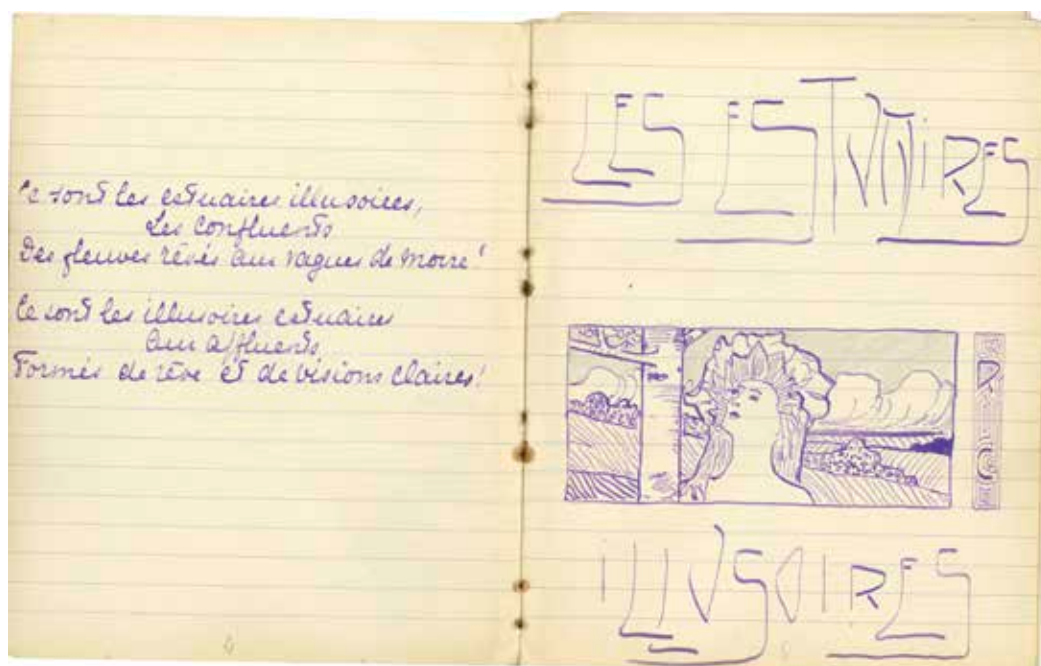 Ce sont les estuaires illusoires,
Les confluents
Des fleuves rêvés aux vagues de moire !
Ce sont les illusoires estuaires
Aux affluents
Formés de rêve et de visions claires !
LES ESTVAIRES
R
G
ILLVSOIRES